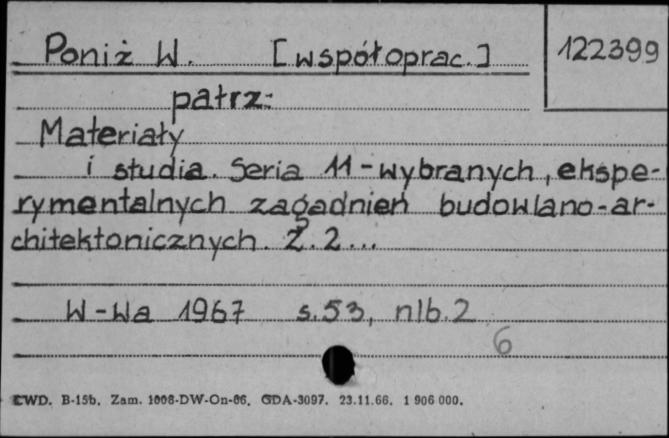 Poniż W. [współoprac.]
122399
patrz:
Materiały
i studia. Seria 11-wybranych, ekspe-
rymentalnych zagadnień budowlano-ar-
chitektonicznych. Z. 2...
W-wa 1967 s.53, nlb.2
6
CWD. B-15b. Zam. 1008-DW-On-66. GDA-3097. 23.11.66. 1 906 000.